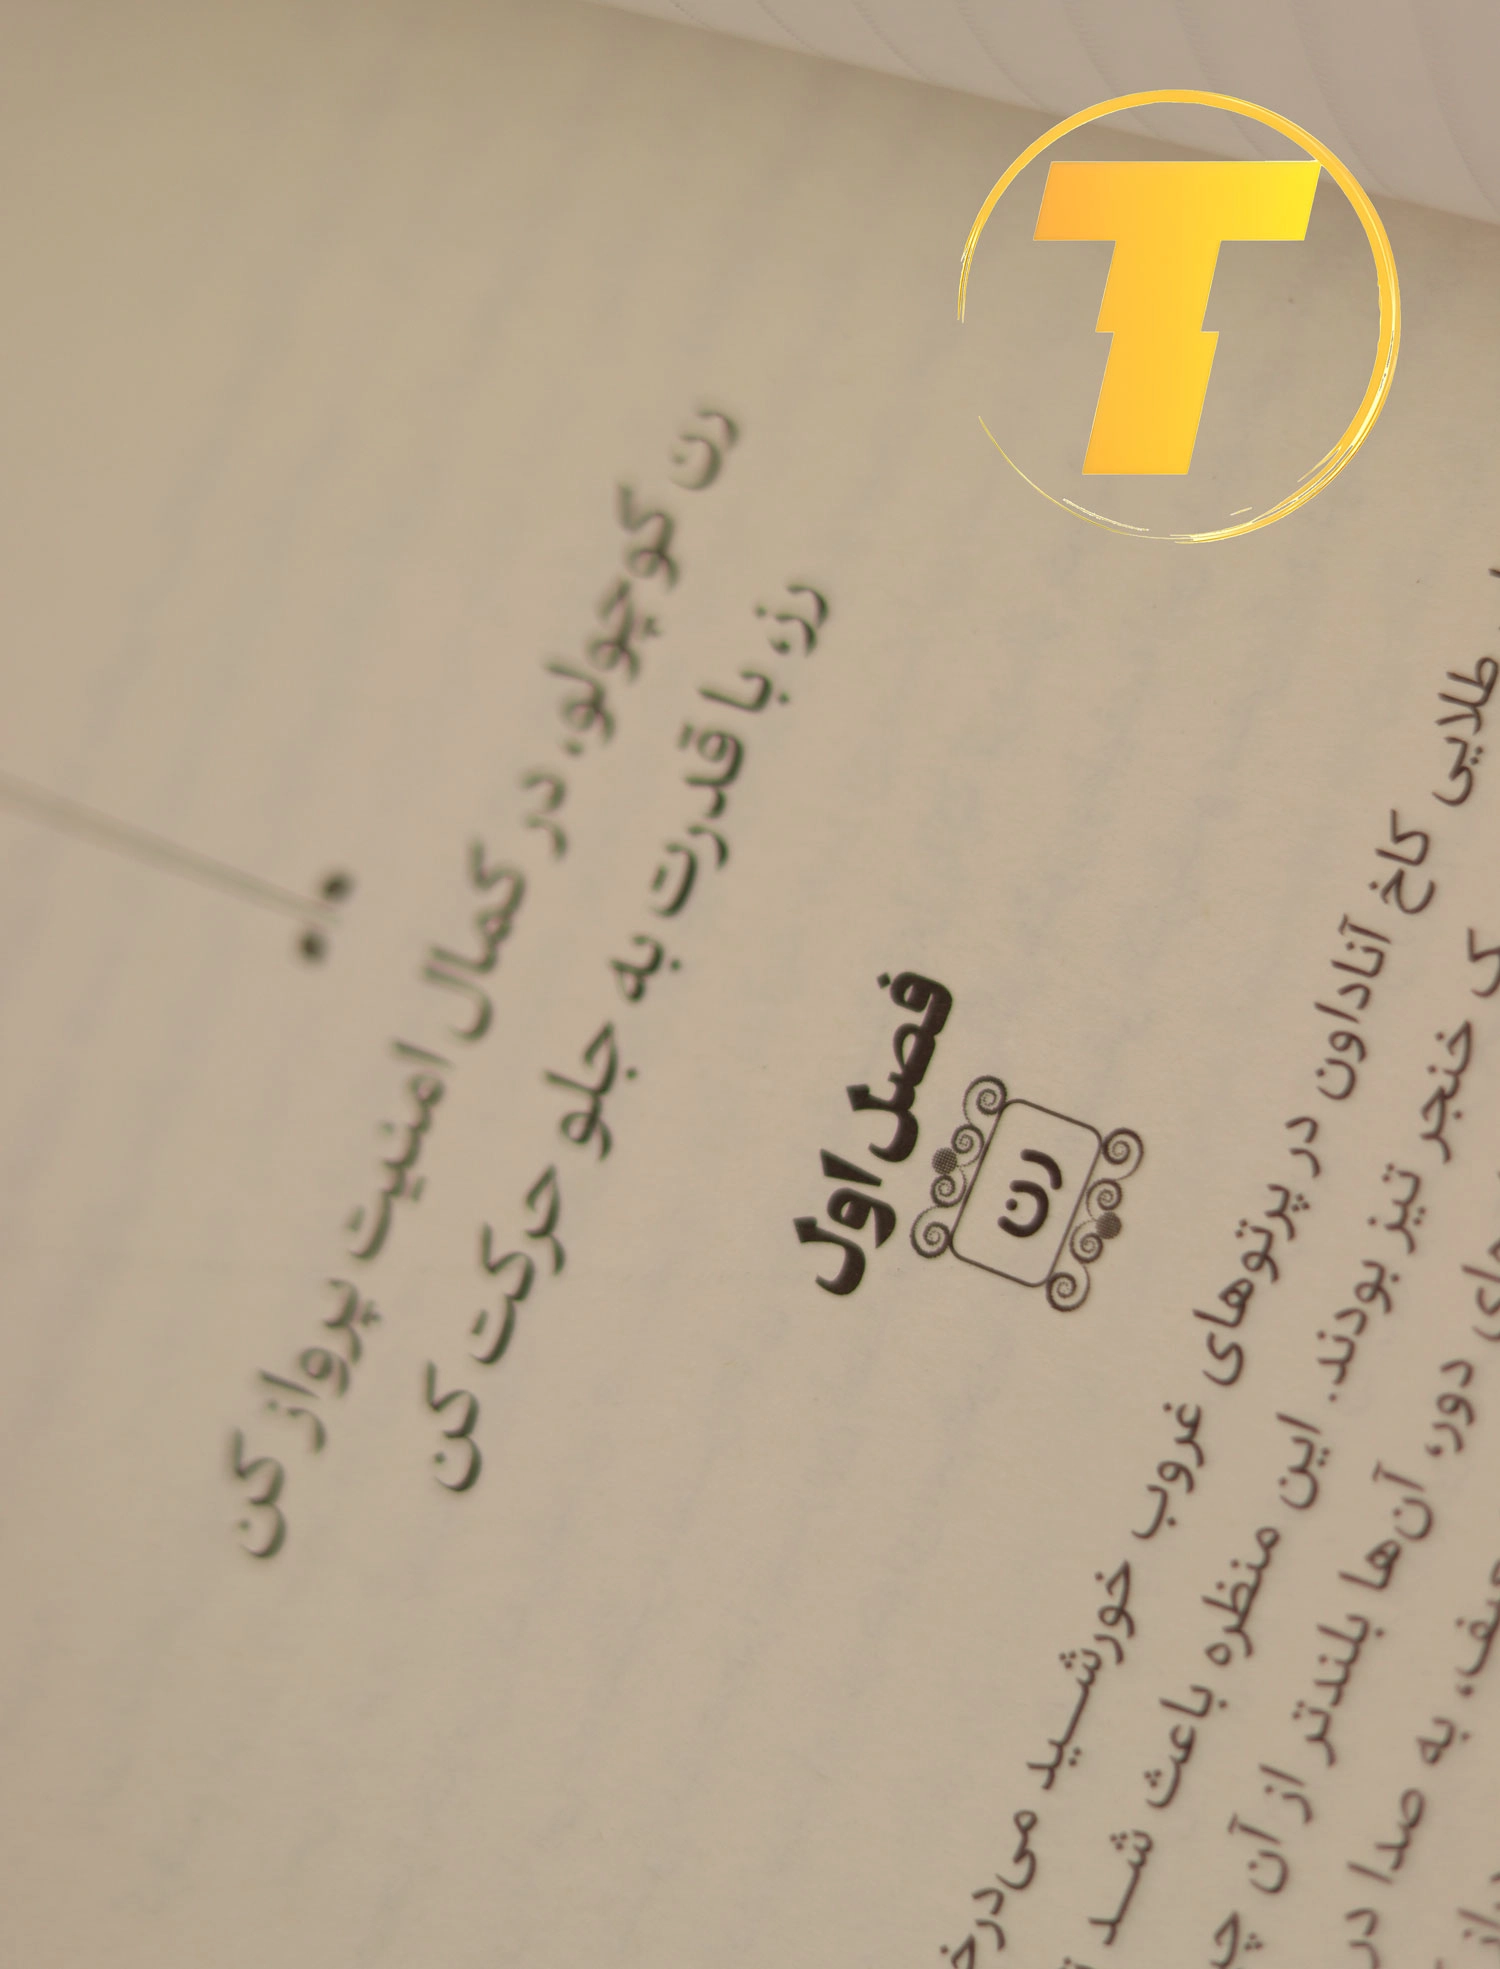 T
رن کوچولو، در کمال امنیت پرواز کن
رز، با قدرت به جلو حرکت کن
فصل اول
رن
طلایی کاخ آناداون در پرتوهای غروب خورشید می‌درخ
ک خنجر تیز بودند. این منظره باعث شد
های دور، آن‌ها بلندتر از آن چ
به صدا در